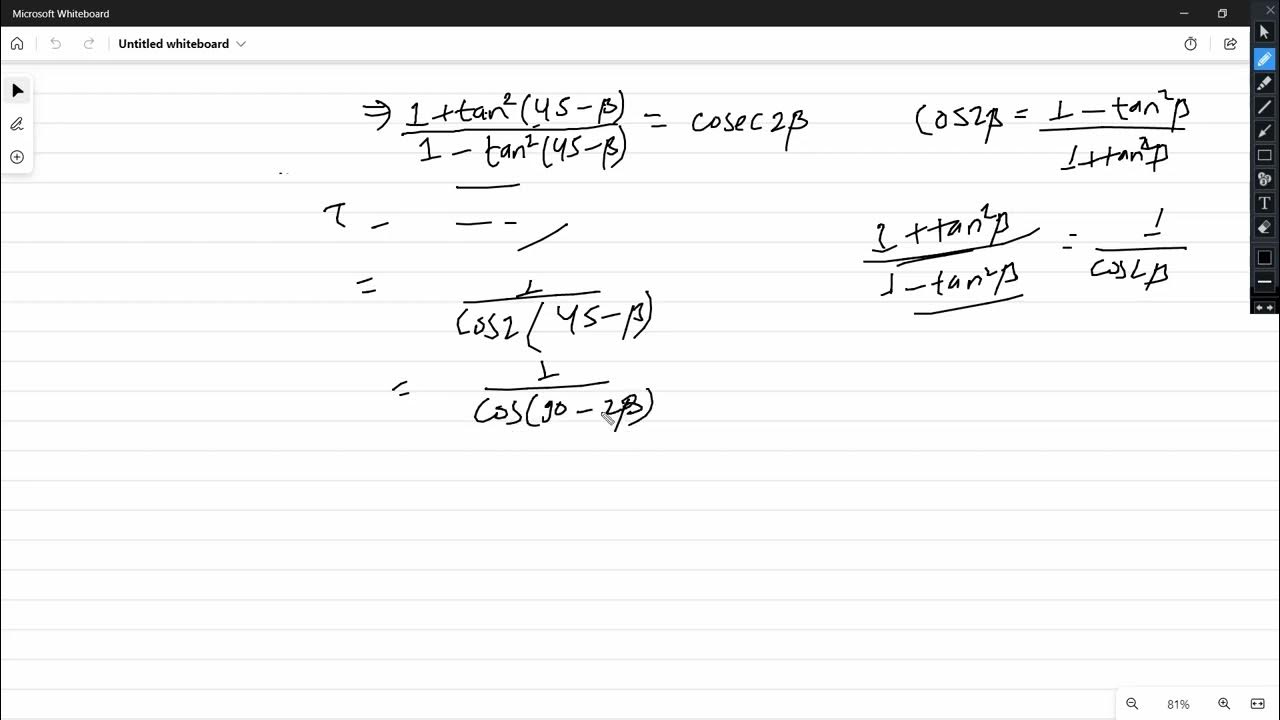 Microsoft Whiteboard
Untitled whiteboard
⇒ (1 + tan²(45 − β)) / (1 − tan²(45 − β)) = cosec 2β
cos2β = (1 − tan²β) / (1 + tan²β)
(1 + tan²β) / (1 − tan²β) = 1 / cos2β
= 1 / cos2(45 − β)
= 1 / cos(90 − 2β)
T
81%